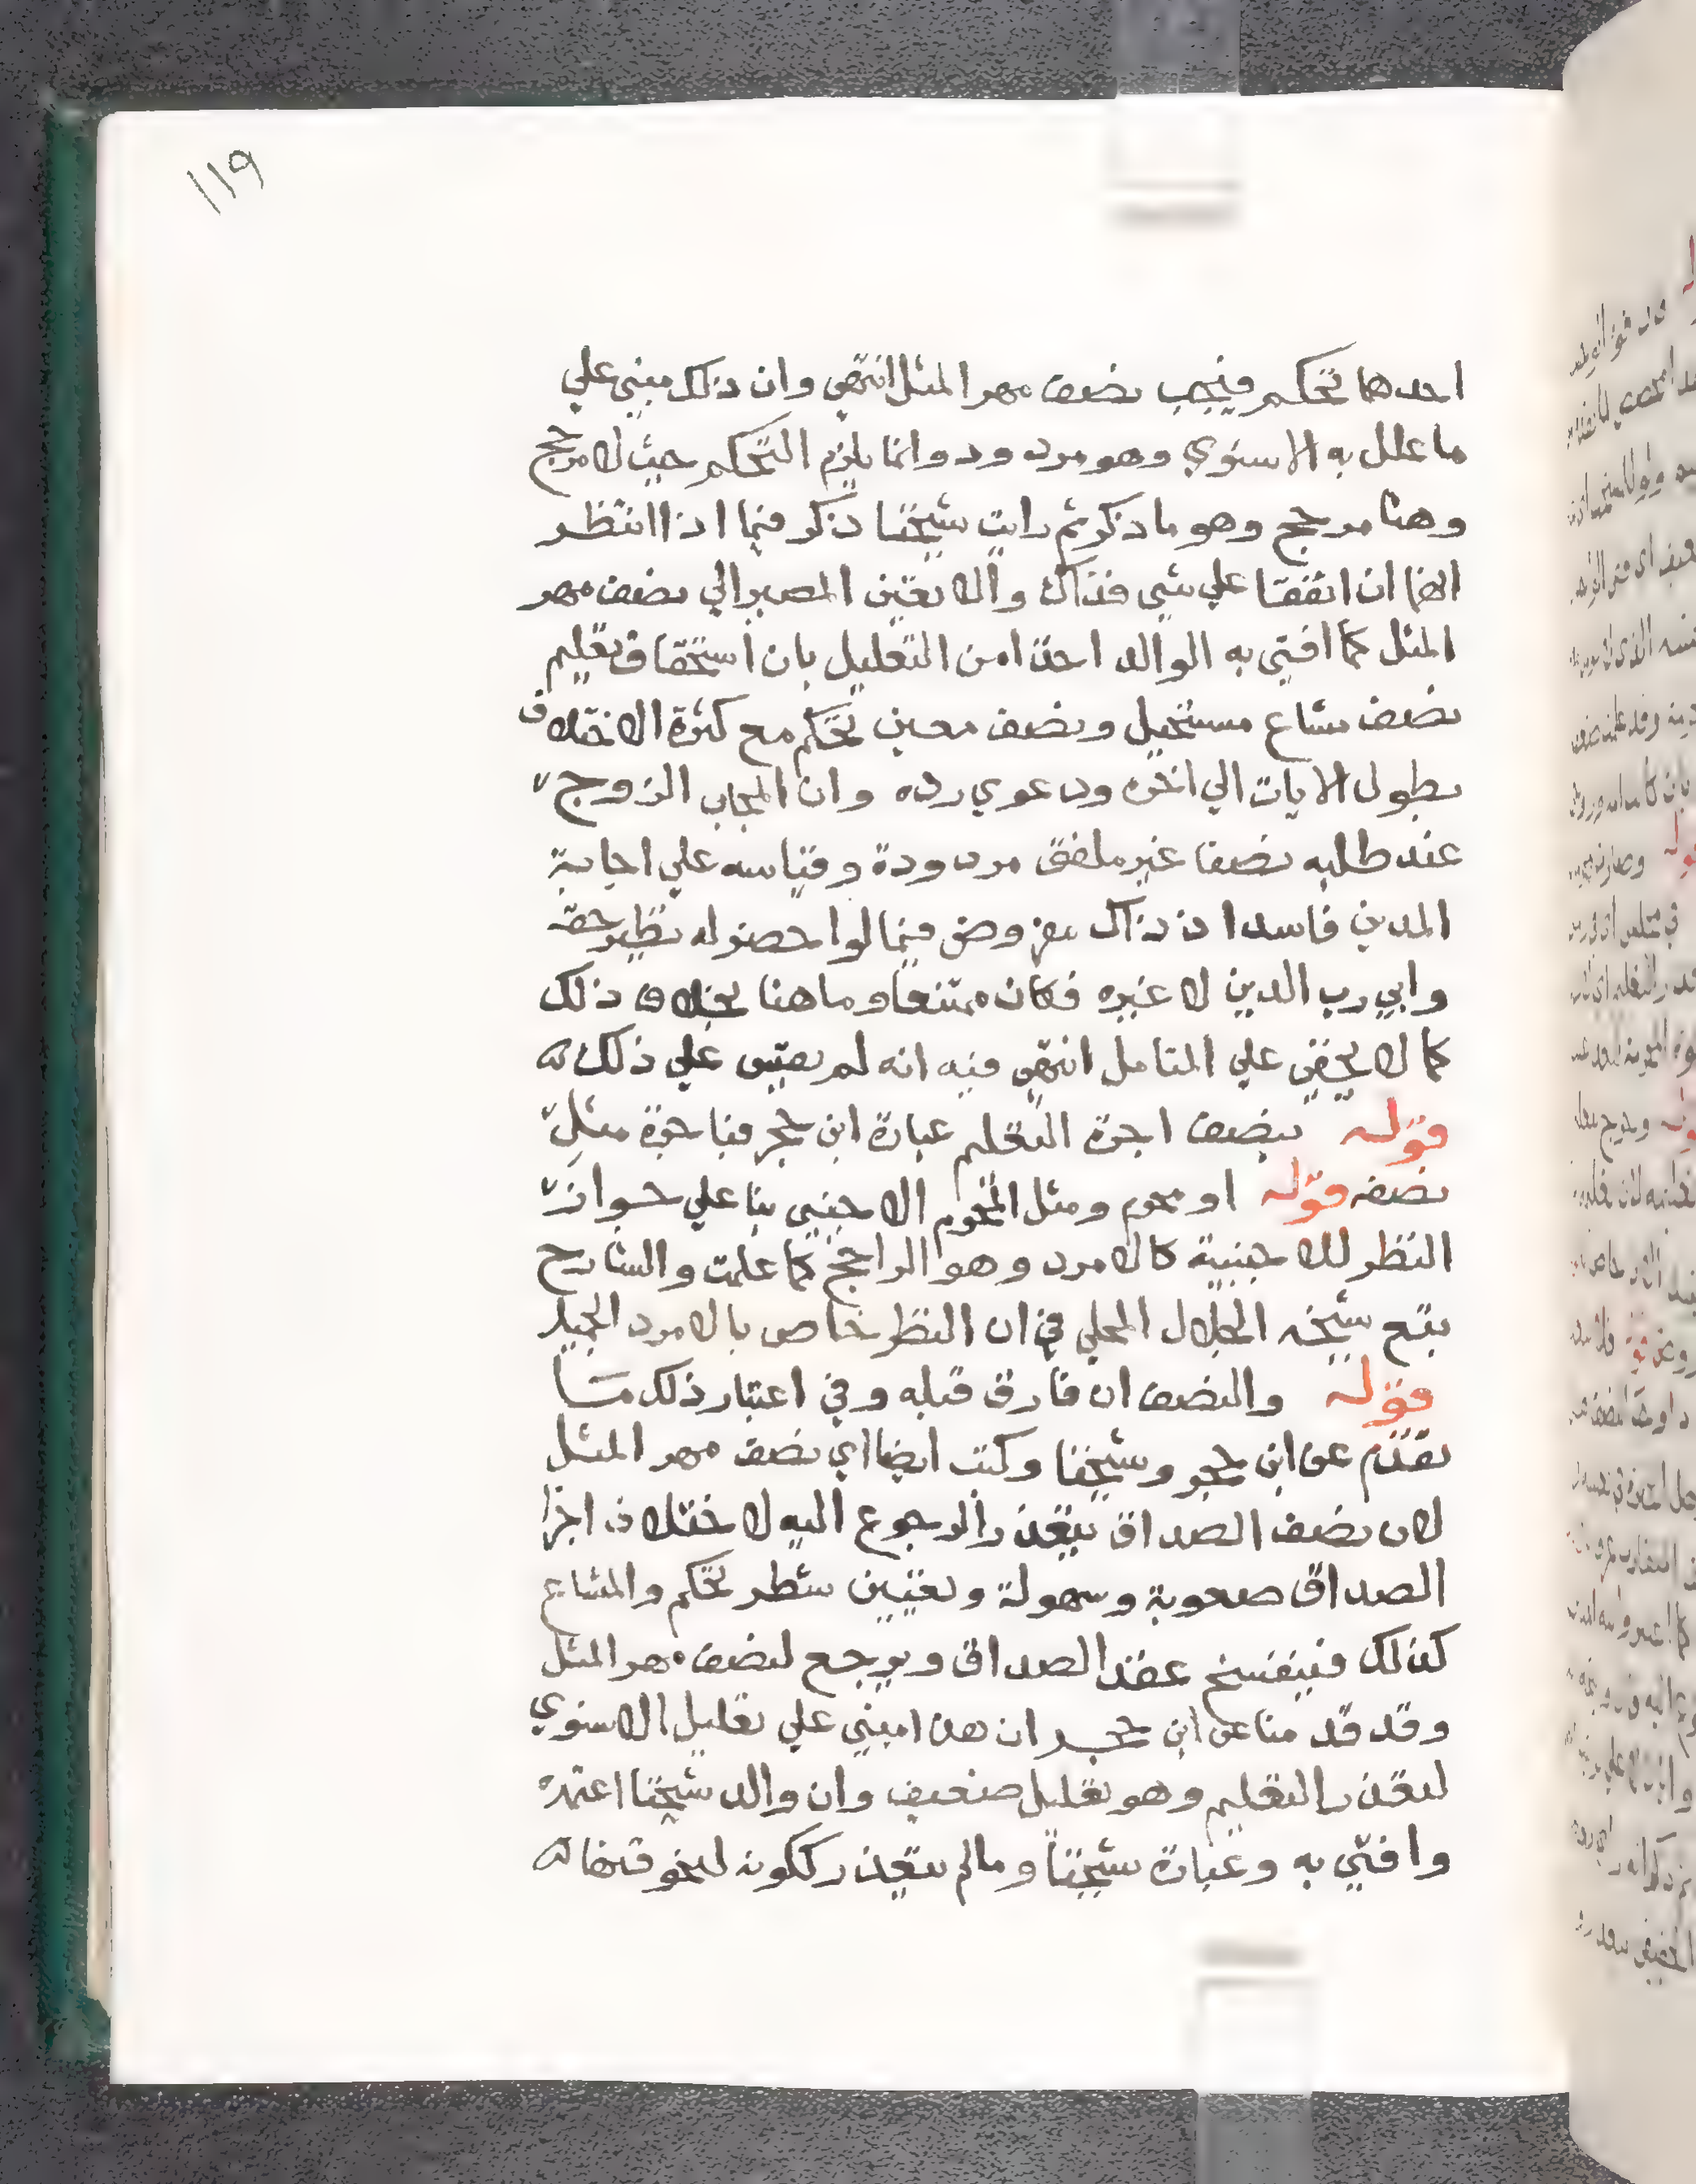 ١١٩
احدها تحكم فيجب نصف مهر المثل انتهي وان ذلك مبني علي
ما علل به الاسنوي وهو مردود وانما يلزم التحكم حيث لا مرجح
وهنا مرجح وهو ما ذكر ثم رايت شيخنا ذكر فيما اذا انتظر
انهما ان اتفقا علي شي فذاك والا تعين المصير الي نصف مهر
المثل كما افتي به الوالد اخذا من التعليل بان استحقاق تعليم
نصف مشاع مستحيل ونصف معين تحكم مع كثرة الاختلاف
بطول الايات الي اخره ودعوي رده وان المجاب الزوج
عند طلبه نصفا غير ملفق مردودة وقياسه علي اجابة
المدين فاسد اذ ذاك مفروض فيما لو احضر له نظير حقه
وابي رب الدين لا غيره فكان ممتنعا وما هنا بخلاف ذلك
كما لا يخفي علي المتامل انتهي فيه انه لم يقس علي ذلك
قوله بنصف اجرة التعليم عبارة ابن حجر فباجرة مثل
نصفه قوله او محرم ومثل المحرم الاجنبي بنا علي جواز
النظر للاجنبية كالامرد وهو الراجح كما علمت والشارح
يتبع شيخه الجلال المحلي في ان النظر خاص بالامرد الجميل
قوله والنصف ان فارق قبله وفي اعتبار ذلك ما
تقدم عن ابن حجر وشيخنا وكتب ايضا اي نصف مهر المثل
لان نصف الصداق يتعذر الرجوع اليه لاختلاف اجزا
الصداق صعوبة وسهولة وتعيين شطر تحكم والمشاع
كذلك فينفسخ عقد الصداق ويرجع لنصف مهر المثل
وقد قدمنا عن ابن حجر ان هذا مبني علي تعليل الاسنوي
لتعذر التعليم وهو تعليل ضعيف وان والد شيخنا اعتمده
وافتي به وعبارة شيخنا وما لم يتعذر لكونه لنحو قنها